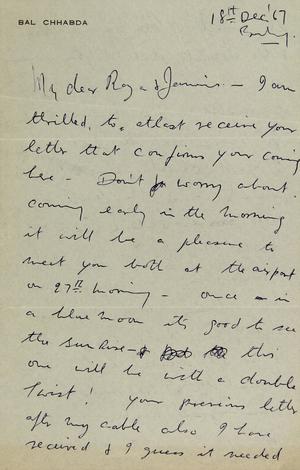 BAL CHHABDA
18th Dec '67
Bombay.
My dear Roy & Jennine - I am
thrilled, to, atlast receive your
letter that confirms your coming
here - Don't worry about
coming early in the morning
it will be a pleasure to
meet you both at the airport
on 27th morning - once in
a blue moon its good to see
the sunrise - this
one will be with a double
Twist! your previous letter
after my cable also I have
received & I guess it needed